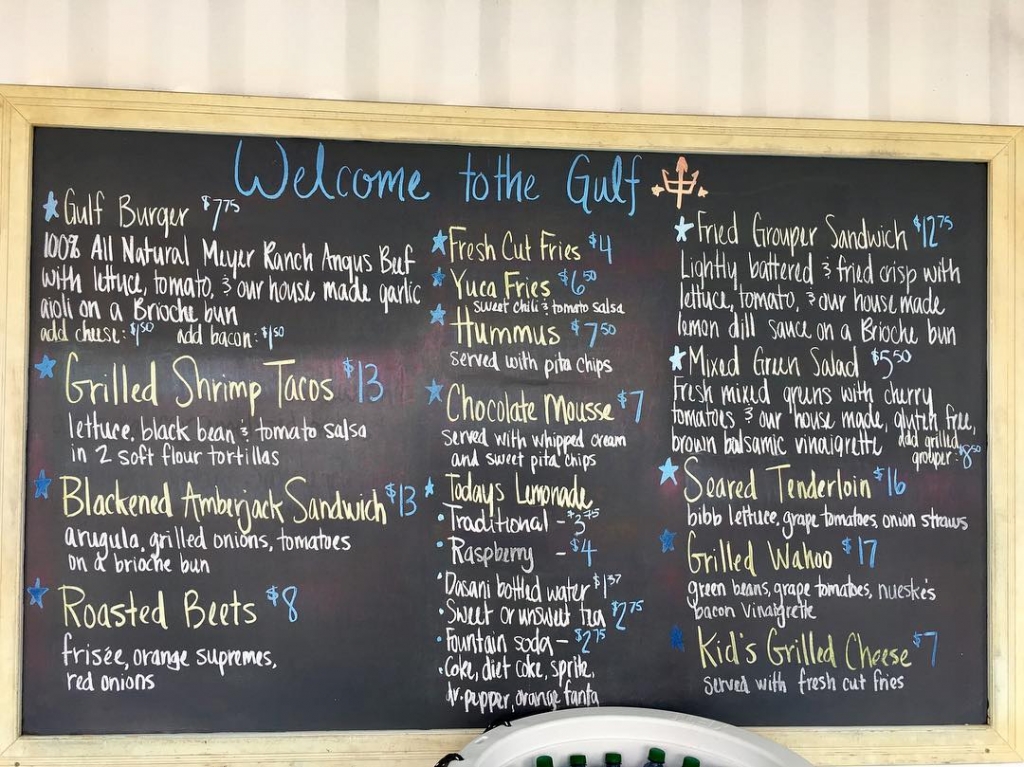 Welcome to the Gulf
Gulf Burger $7.75
100% All Natural Meyer Ranch Angus Beef
with lettuce, tomato, & our house made garlic
aioli on a Brioche bun
add cheese: $1.50 add bacon: $1.50
Grilled Shrimp Tacos $13
lettuce, black bean & tomato salsa
in 2 soft flour tortillas
Blackened Amberjack Sandwich $13
arugula, grilled onions, tomatoes
on a brioche bun
Roasted Beets $8
frisée, orange supremes,
red onions
Fresh Cut Fries $4
Yuca Fries $6.50
sweet chili & tomato salsa
Hummus $7.50
served with pita chips
Chocolate Mousse $7
served with whipped cream
and sweet pita chips
Todays Lemonade
• Traditional - $3.75
• Raspberry - $4
• Dasani bottled water $1.37
• Sweet or unsweet tea $2.75
• Fountain soda - $2.75
• Coke, diet coke, sprite,
dr. pepper, orange fanta
Fried Grouper Sandwich $12.75
Lightly battered & fried crisp with
lettuce, tomato, & our house made
lemon dill sauce on a Brioche bun
Mixed Green Salad $5.50
Fresh mixed greens with cherry
tomatoes & our house made, gluten free,
brown balsamic vinaigrette add grilled
grouper: $8.50
Seared Tenderloin $16
bibb lettuce, grape tomatoes, onion straws
Grilled Wahoo $17
green beans, grape tomatoes, nueske's
bacon vinaigrette
Kid's Grilled Cheese $7
served with fresh cut fries